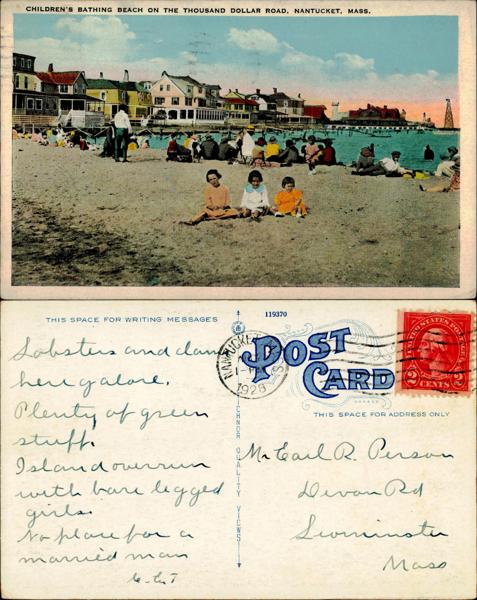 CHILDREN'S BATHING BEACH ON THE THOUSAND DOLLAR ROAD, NANTUCKET, MASS.
THIS SPACE FOR WRITING MESSAGES
119370
POST
CARD
THIS SPACE FOR ADDRESS ONLY
NANTUCKET
1928
UNITED STATES POSTAGE
2 CENTS 2
C.T. PHOTOCHROM QUALITY VIEWS
Lobsters and clams
here galore.
Plenty of green
stuff.
Island overrun
with bare legged
girls.
No place for a
married man
Mr Earl R. Person
Devon Rd
Leominster
Mass